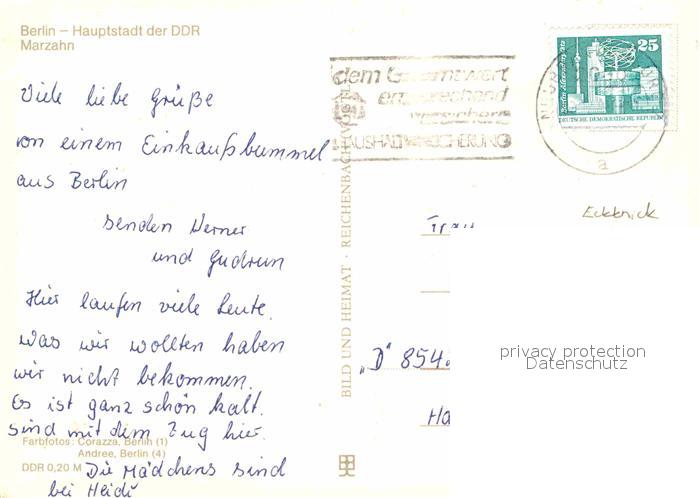 Berlin – Hauptstadt der DDR
Marzahn
Viele liebe Grüße
von einem Einkaufsbummel
aus Berlin
senden Werner
und Gudrun
Hier laufen viele Leute.
Was wir wollten haben
wir nicht bekommen.
Es ist ganz schön kalt.
Sind mit dem Zug hier.
Die Mädchens sind
bei Heidi
Farbfotos: Corazza, Berlin (1)
Andree, Berlin (4)
DDR 0,20 M
BILD UND HEIMAT · REICHENBACH (VOGTL
dem Gesamtwert
entsprechend
versichern
HAUSHALTVERSICHERUNG
25
Berlin, Alexanderplatz
DEUTSCHE DEMOKRATISCHE REPUBLIK
a
Eckknick
"D" 854
Ha
privacy protection
Datenschutz